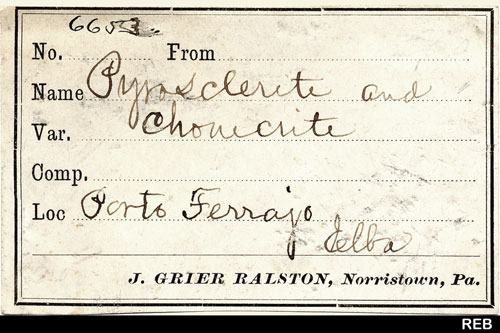 6653.
No. From
Name Pyrosclerite and
Var. Chonicrite
Comp.
Loc Porto Ferrajo
Elba
J. GRIER RALSTON, Norristown, Pa.
REB